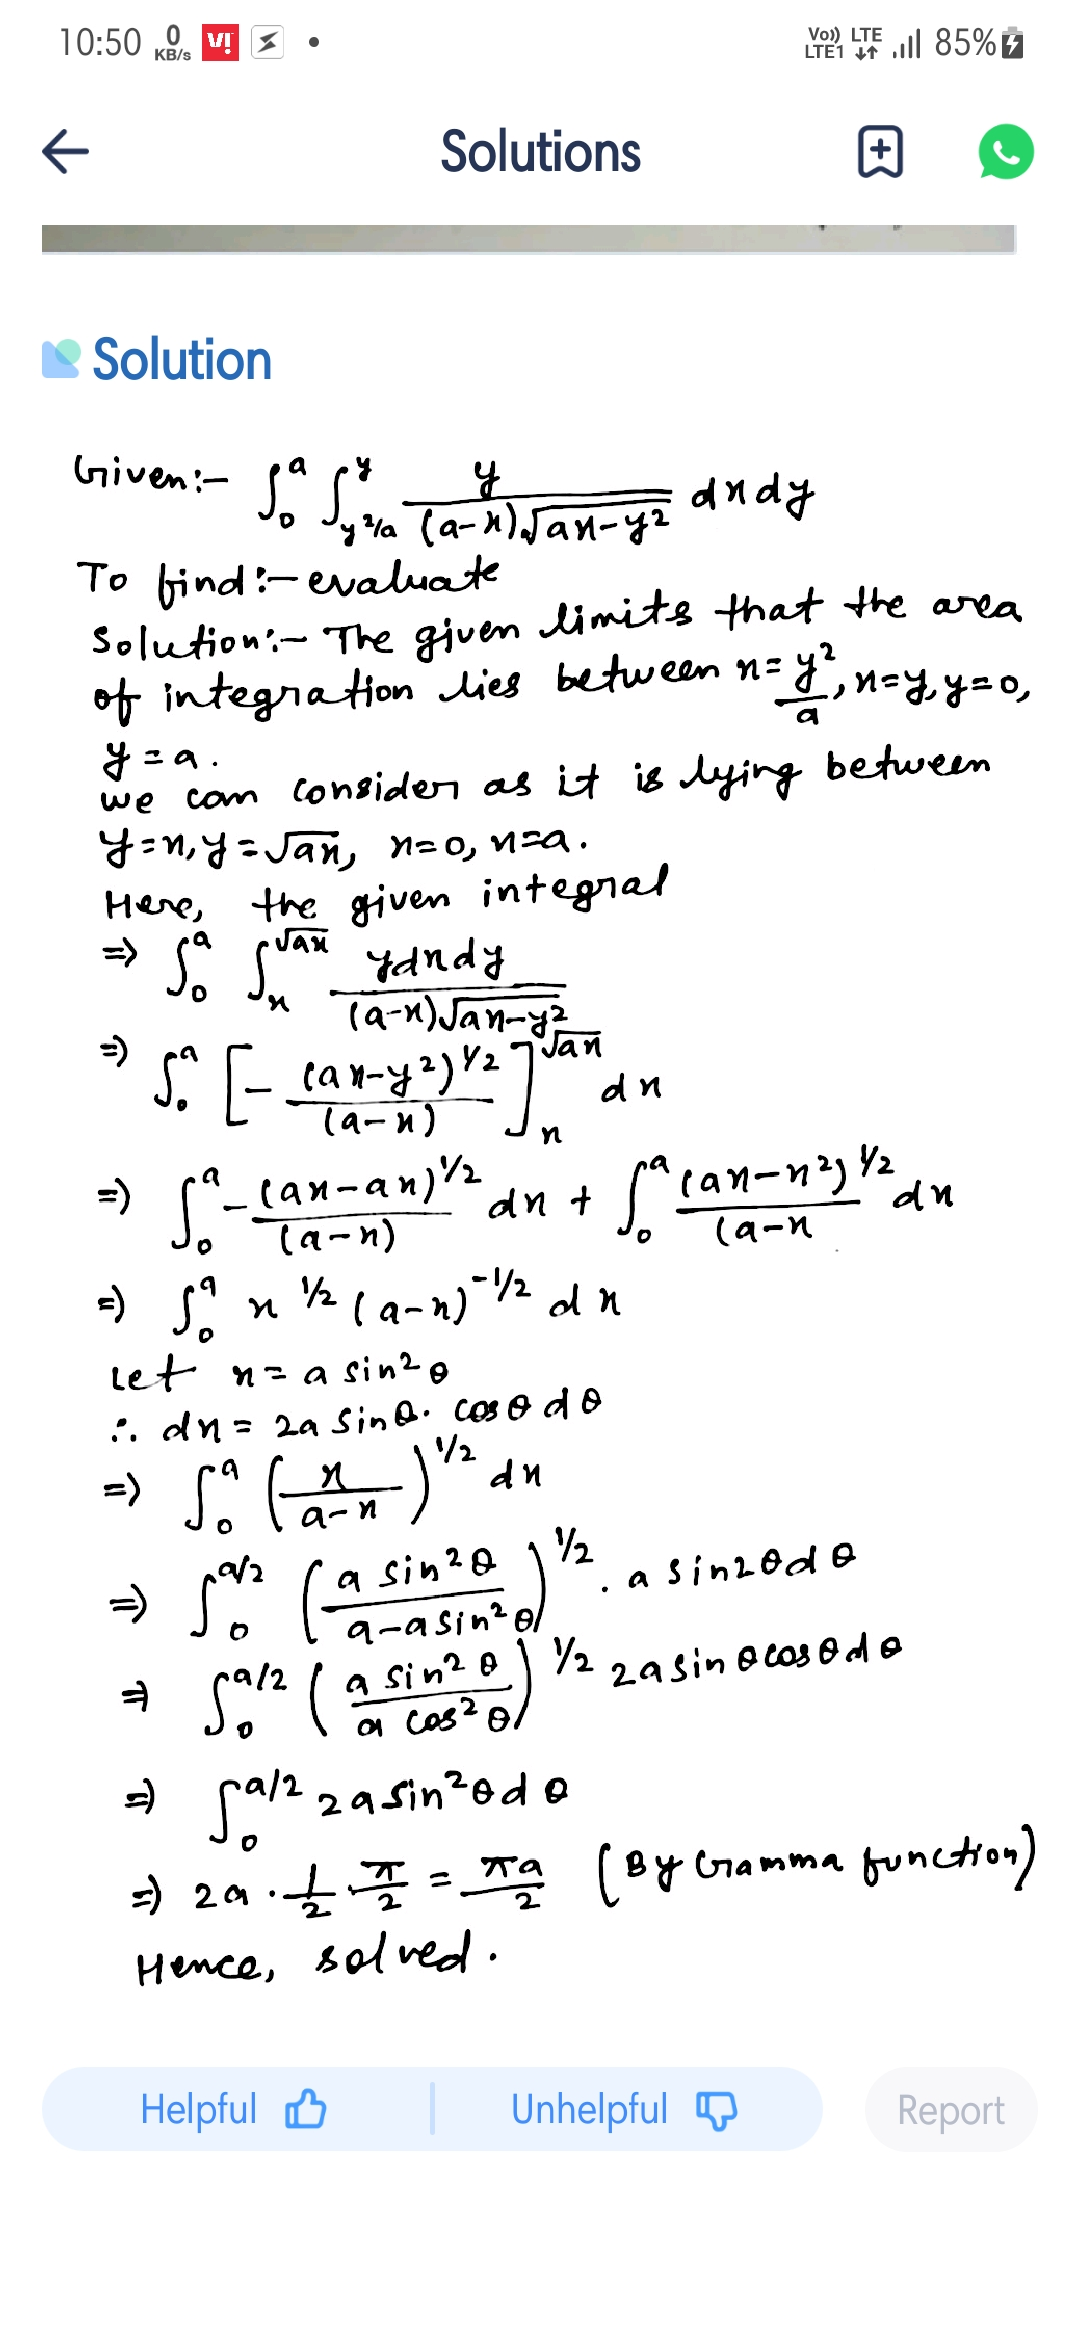 10:50 0 KB/s V! Vo)) LTE LTE1 85%
Solutions
Solution
Given:- ∫₀ᵃ ∫_{y²/a}^{y} y/((a-x)√(ax-y²)) dxdy
To find:- evaluate
Solution:- The given limits that the area
of integration lies between x = y²/a, x=y, y=0,
y = a.
we can consider as it is lying between
y=x, y=√ax, x=0, x=a.
Here, the given integral
⇒ ∫₀ᵃ ∫_{x}^{√ax} ydxdy/((a-x)√(ax-y²))
⇒ ∫₀ᵃ [- (ax-y²)^{1/2}/(a-x)]_{x}^{√ax} dx
⇒ ∫₀ᵃ -(ax-ax)^{1/2}/(a-x) dx + ∫₀ᵃ (ax-x²)^{1/2}/(a-x dx
⇒ ∫₀ᵃ x^{1/2} (a-x)^{-1/2} dx
Let x = a sin²θ
∴ dx = 2a sinθ. cosθ dθ
⇒ ∫₀ᵃ (x/(a-x))^{1/2} dx
⇒ ∫₀^{a/2} (a sin²θ/(a-a sin²θ))^{1/2} . a sin2θdθ
⇒ ∫₀^{a/2} (a sin²θ/(a cos²θ))^{1/2} 2a sinθcosθdθ
⇒ ∫₀^{a/2} 2a sin²θdθ
⇒ 2a . 1/2 . π/2 = πa/2 (By Gramma function)
Hence, solved.
Helpful Unhelpful Report